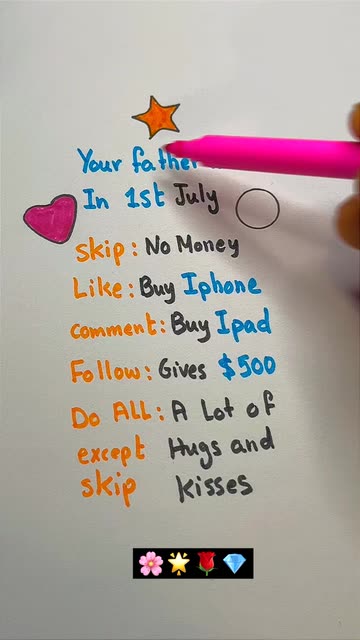 Your father
In 1st July
skip: No Money
Like: Buy Iphone
comment: Buy Ipad
Follow: Gives $500
Do ALL: A Lot of
except Hugs and
skip kisses